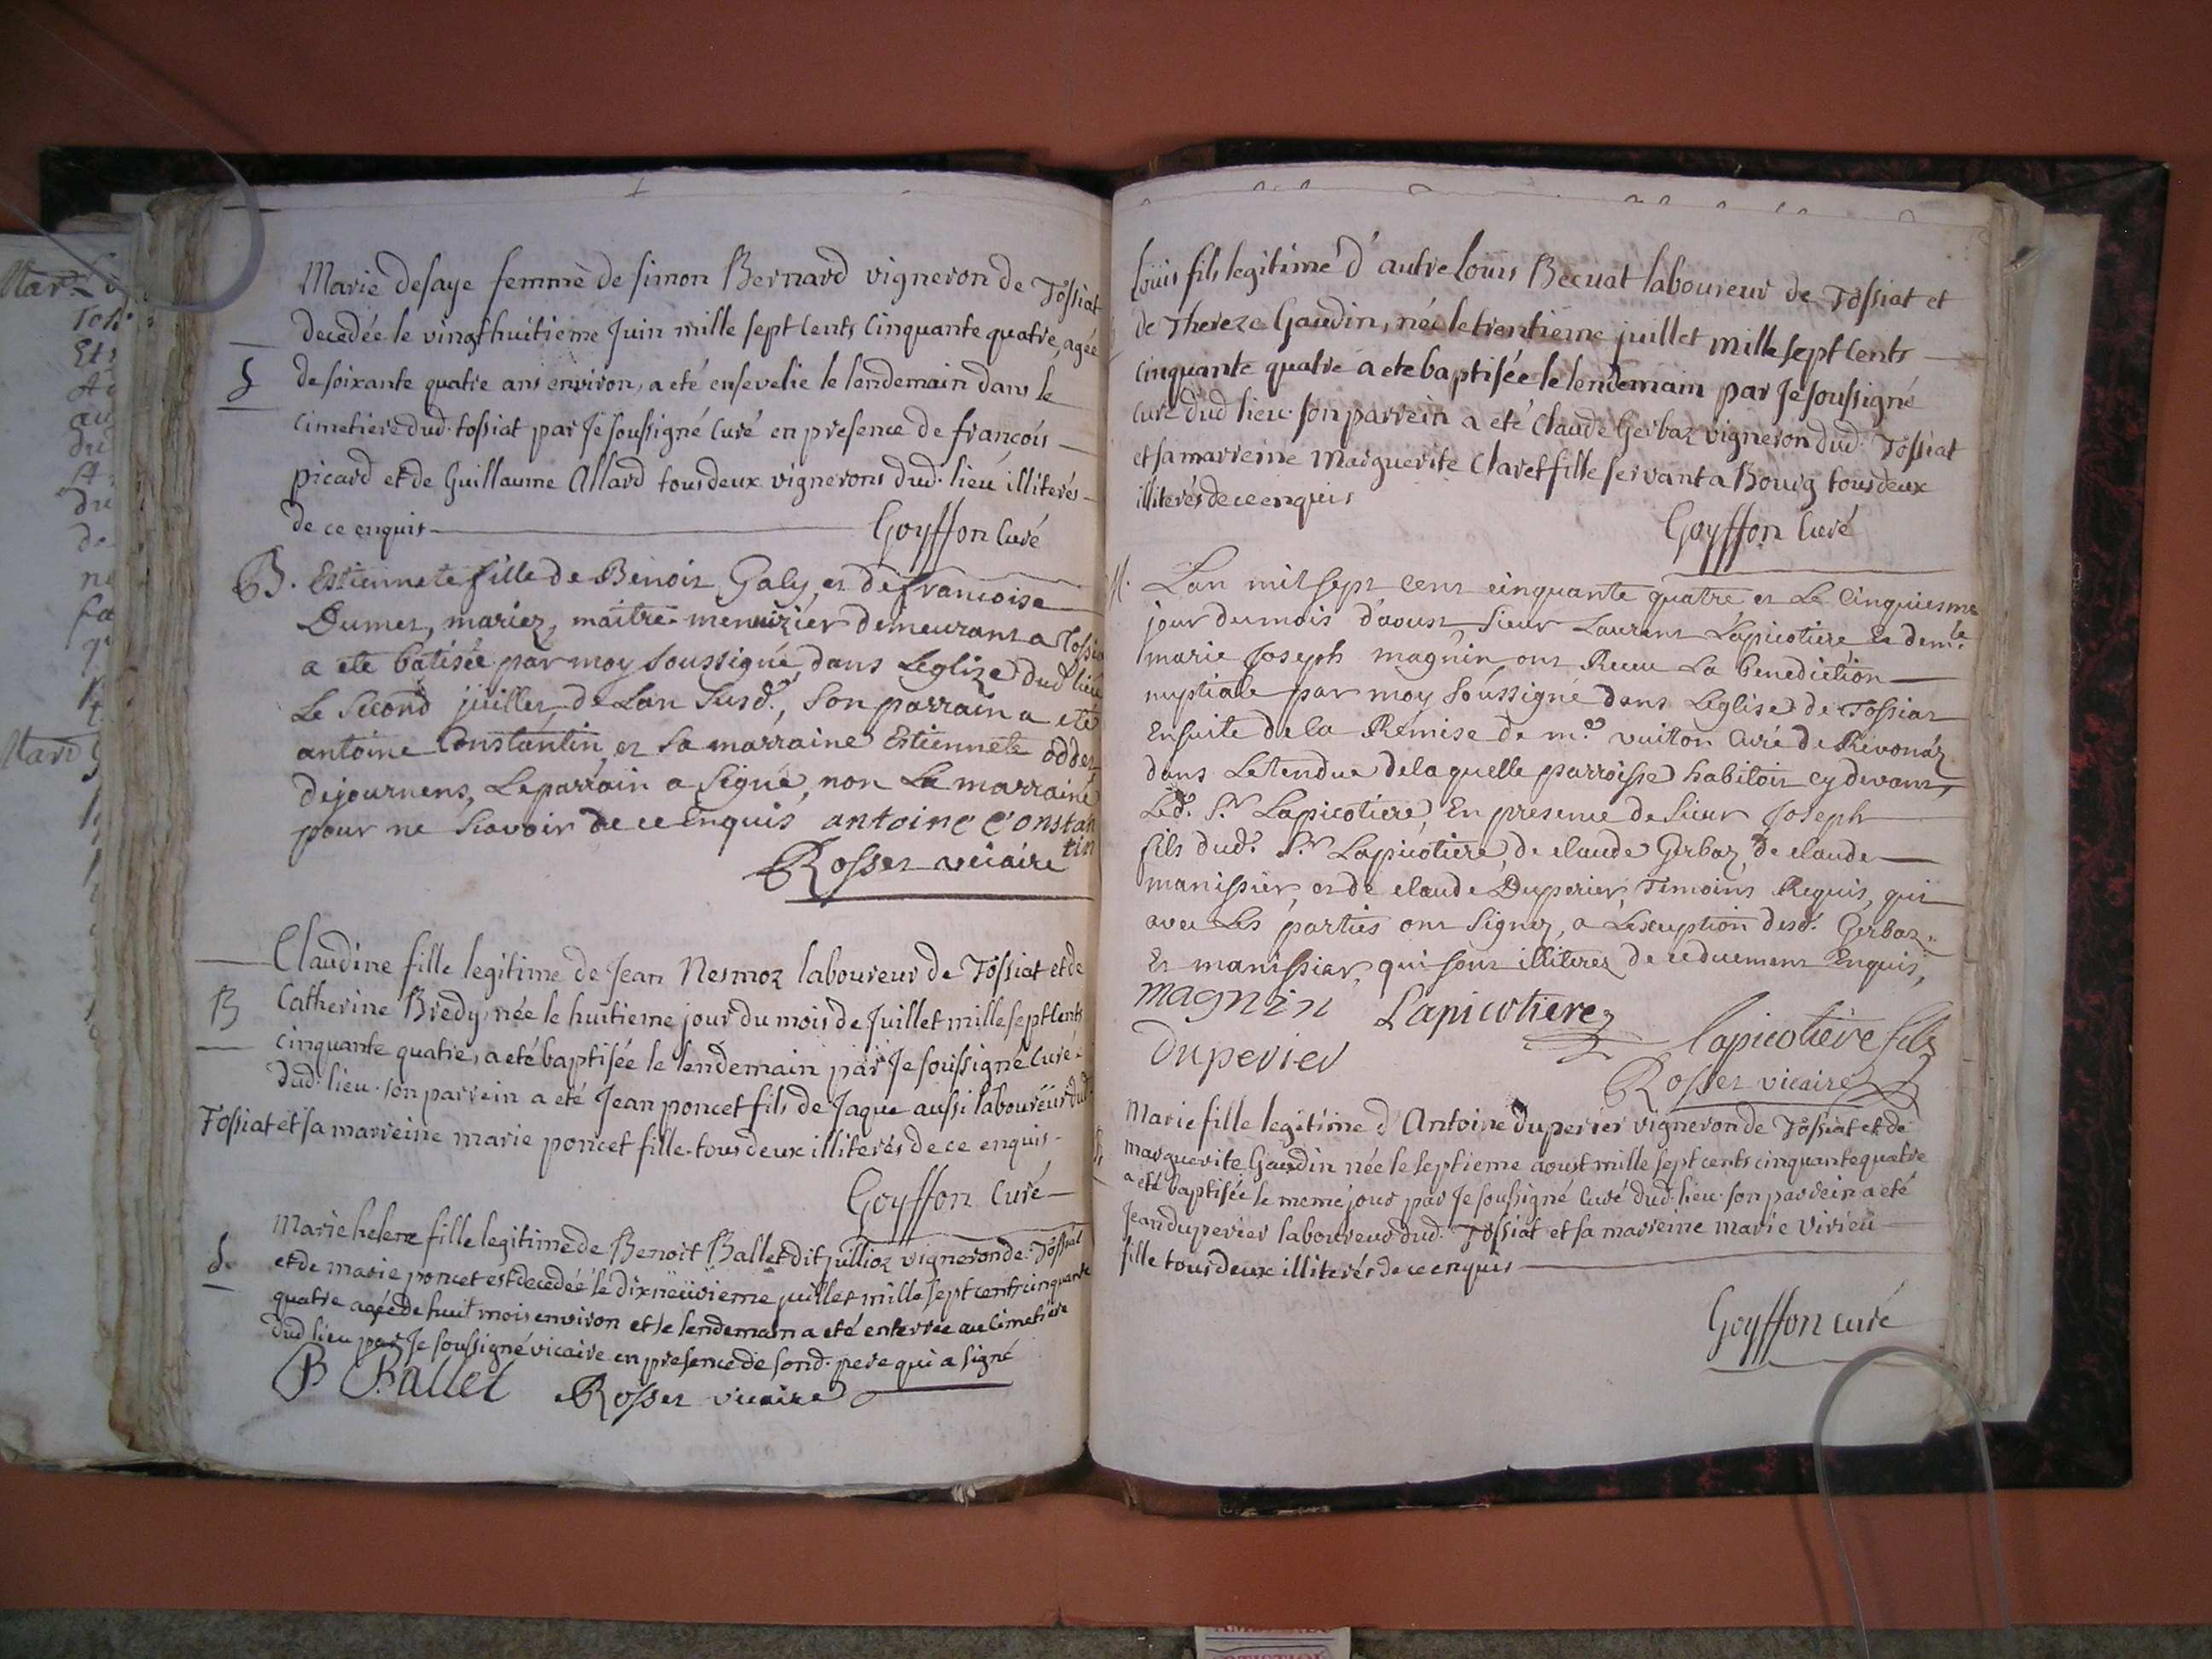 Marie desaye femme de simon Bernard vigneron de Tossiat
decedée le vingthuitieme Juin mille sept cents cinquante quatre, agée
S
de soixante quatre ans environ, a eté ensevelie le lendemain dans le
cimetiere dud. tossiat par Je soussigné curé en presence de françois
picard et de Guillaume Allard tous deux vignerons dud. lieu illiterés
de ce enquis Goyffon Curé
B. Estiennete fille de Benoit Galy, et de francoise
Dumet, mariez, maitre menuizier demeurant a Tossia
a ete batisée par moy soussigné, dans Leglize dud lieu
Le second juillet, de Lan susd., son parrain a eté
antoine Constantin, et sa marraine Estiennete oddet
dejournens, Le parrain a signé, non La marraine
pour ne scavoir de ce Enquis antoine Constan
tin
Rosset vicaire
Claudine fille legitime de Jean Nesmoz laboureur de Tossiat et de
B
Catherine Bredy, née le huitieme jour du mois de Juillet mille sept cents
cinquante quatre, a eté baptisée le lendemain par Je soussigné Curé
dud. lieu. son parrein a eté Jean poncet fils de Jaque aussi laboureur dud.
Tossiat et sa marreine marie poncet fille. tous deux illiterés de ce enquis
Goyffon Curé
Marie helene fille legitime de Benoit Ballet dit juillioz vigneron de Tossiat
S.
et de marie poncet est decedée le dixneuvieme juillet mille sept cents cinquante
quatre agée de huit mois environ et le lendemain a eté enterrée au Cimetiere
dud lieu par Je soussigné vicaire en presence de sond. pere qui a signé
B Ballet Rosset vicaire
Louis fils legitime d'autre Louis Becuat laboureur de Tossiat et
de Thereze Gaudin, née le trentieme juillet mille sept cents
cinquante quatre a ete baptisée le lendemain par Je soussigné
curé dud lieu. son parrein a eté Claude Gerbaz vigneron dud. Tossiat
et sa marreine Marguerite Claret fille servant a Bourg tous deux
illiterés de ce enquis
Goyffon Curé
M. Lan mil sept cent cinquante quatre et Le Cinquiesme
jour du mois d'aoust sieur Laurent Lapicotiere Et dem.le
marie Joseph magnin ont Receu La benediction
nuptiale par moy soussigné dans Leglise de Tossiat
Ensuite de la Remise de m.e vuiton Curé de Revonaz
dans Letendue delaquelle parroisse habitoit cy devant,
Led. S.r Lapicotiere, En presence de Sieur Joseph
fils dud. S.r Lapicotiere, de claude Gerbaz, de claude
manissier, et de claude Duperier, Temoins Requis, qui
avec Les parties ont signez, a Lexception desd. Gerbaz
Et manissiar, qui sont illiterez de ce duement Enquis,
magnin Lapicotiere lapicotiere fils
duperier
Rosset vicaire
Marie fille legitime d'Antoine duperier vigneron de Tossiat et de
marguerite Gaudin née le septieme aoust mille sept cents cinquante quatre
a eté baptisée le meme jour par Je soussigné curé dud. lieu. son parrein a eté
Jean duperier laboureur dud. Tossiat et sa marreine marie Virieu
fille tous deux illiterés de ce enquis
Goyffon curé